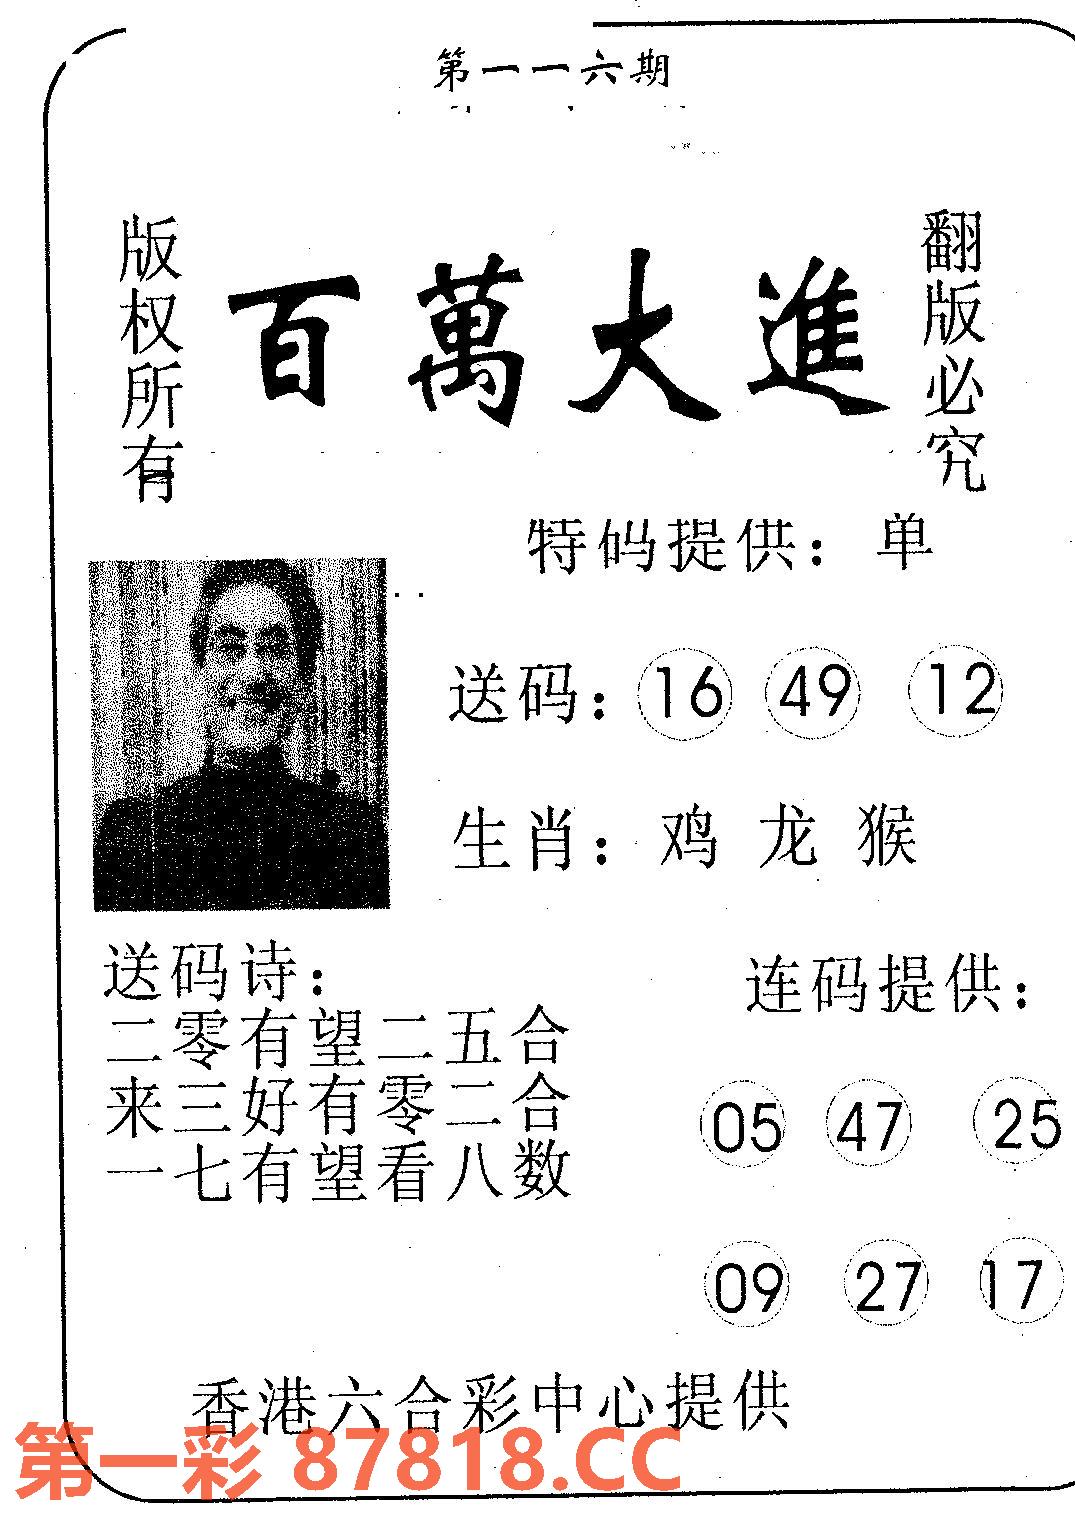 第一一六期
版权所有
百萬大進
翻版必究
特码提供：单
送码：16 49 12
生肖：鸡 龙 猴
送码诗：
二零有望二五合
来三好有零二合
一七有望看八数
连码提供：
05 47 25
09 27 17
香港六合彩中心提供
第一彩 87818.CC